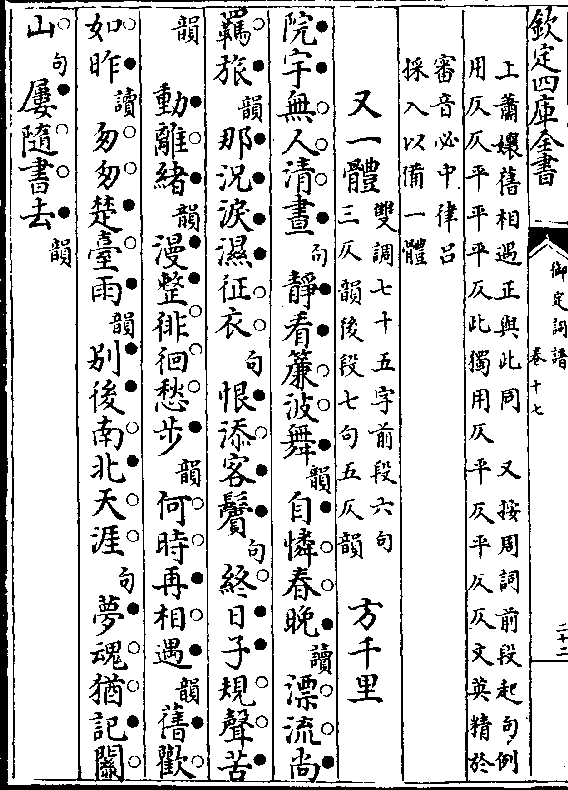 欽定四庫全書
御定詞譜
卷十七
二十二
上蕭孃舊相遇正與此同　又按周詞前段起句例
用仄仄平平平仄此獨用仄平仄平仄仄文英精於
審音必中律呂
採入以備一體
又一體
雙調七十五字前段六句
三仄韻後段七句五仄韻
方千里
院宇無人清晝句靜看簾波舞韻自憐春晚讀漂流尚
羈旅韻那況淚濕征衣句恨添客鬢句終日子規聲苦
韻　動離緒韻漫整徘徊愁步韻何時再相遇韻舊歡
如昨讀匆匆楚臺雨韻別後南北天涯句夢魂猶記關
山句屢隨書去韻